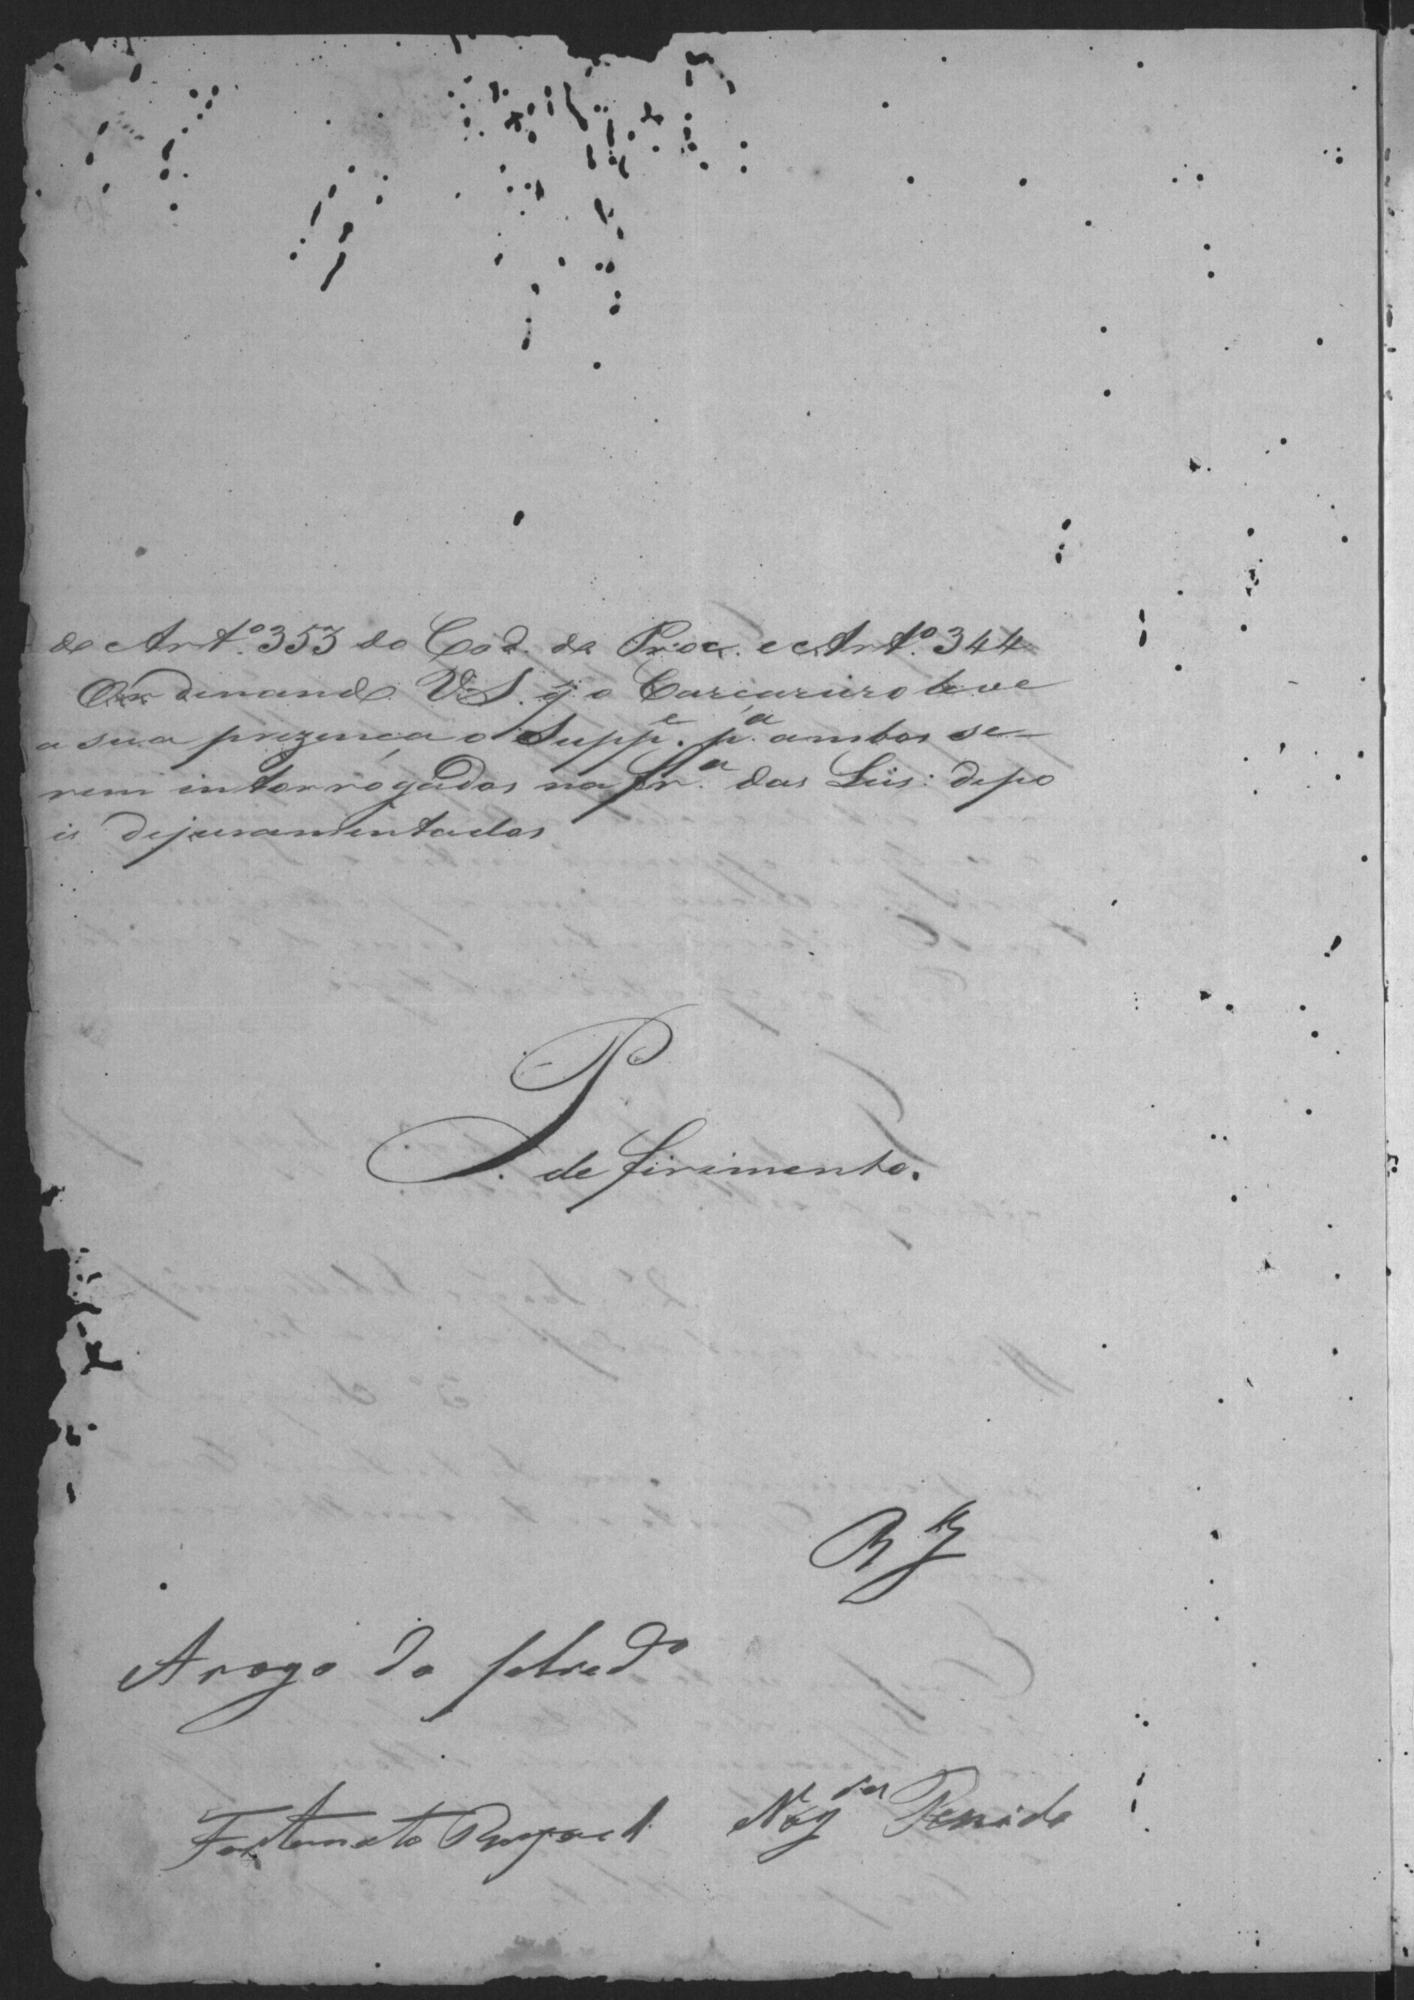 do Art.º 353 do Cod. do Proc. e Art.º 344
Ordenando V.S. q̃ o Carcereiro leve
a sua prezença o Supp.e p.a ambos se-
rem intorrogados na fr.a das Leis: depo
is dejuramentados
P. deferimento.
R M
Arogo do petred.o
Fortunato Raphael Nog.ra Penido